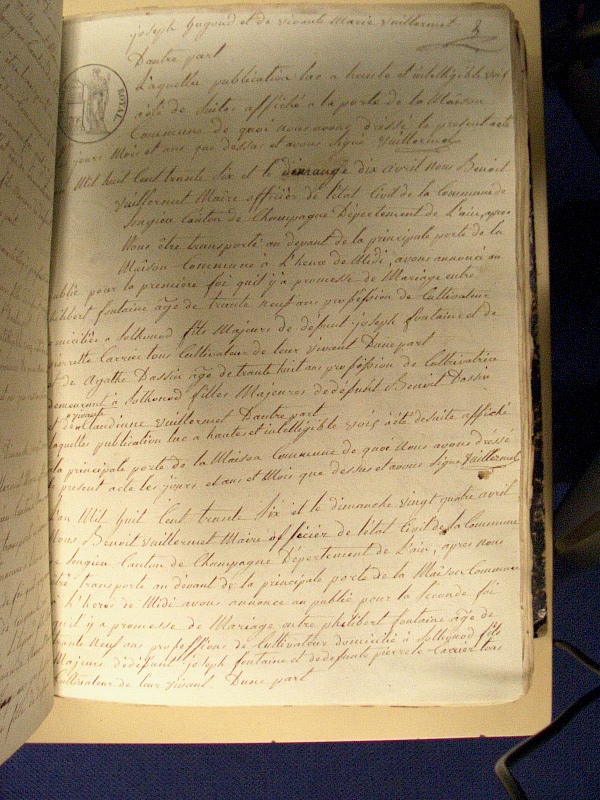 joseph hugoud et de vivante Marie vuillermet
Dautre part
Laquelle publication lue a haute et intelligible voix
ROYAL
acte de suites affiché a la porte de la Maison
Commune de quoi nous avons dréssé le present acte
jours Mois et ans que dessus et avons signé Vuillermet
Mil huit cent trente Six et le dimanche dix avril nous Benoit
vuillermet Maire officier de letat Civil de la Commune de
Songieu Canton de Champagne Département de L'ain, apres
Nous être transporté au devant de la principale porte de la
Maison Commune à L'heure de Midi, avons annoncé au
publié pour la premiere foi quil y a promesse de Mariage entre
philibert fontaine âgé de trente neuf ans profession de Cultivateur
domicilié a Sothonod fils Majeurs de défunt joseph fontaine et de
pierrette Carrier tous Cultivateur de leur vivent Dune part
et de Agathe Dassin âgé de trente huit ans profession de Cultivatrice
demeurant à Sothonod filles Majeures de défunt Benoit Dassin
et de vivante Claudinne vuillermet Dautre part
Laquelles publication lue a hautes et intelligible voix acte desuite affiché
a la principale porte de la Maison Commune de quoi Nous avons dréssé
le present acte les jours et ans et Mois que dessus et avons Signé Vuillermet
L'an Mil huit Cent trente Six et le dimanche vingt quatre avril
Nous Benoit vuillermet Maire officier de létat Civil de la Commune
de Songieu Canton de Champagne Département de L'ain, apres nous
être transporté au devant de la principale porte de la Maison Commune
a L'heres de Midi avons annoncé au public pour la Seconde foi
quil y a promesse de Mariage entre philibert fontaine âgé de
trente neuf ans proffessions de Cultivateur domicilié à Sothonod fils
Majeurs de défunt joseph fontaine et de defunte pierrete Carrier tous
Cultivateur de leur vivant Dune part